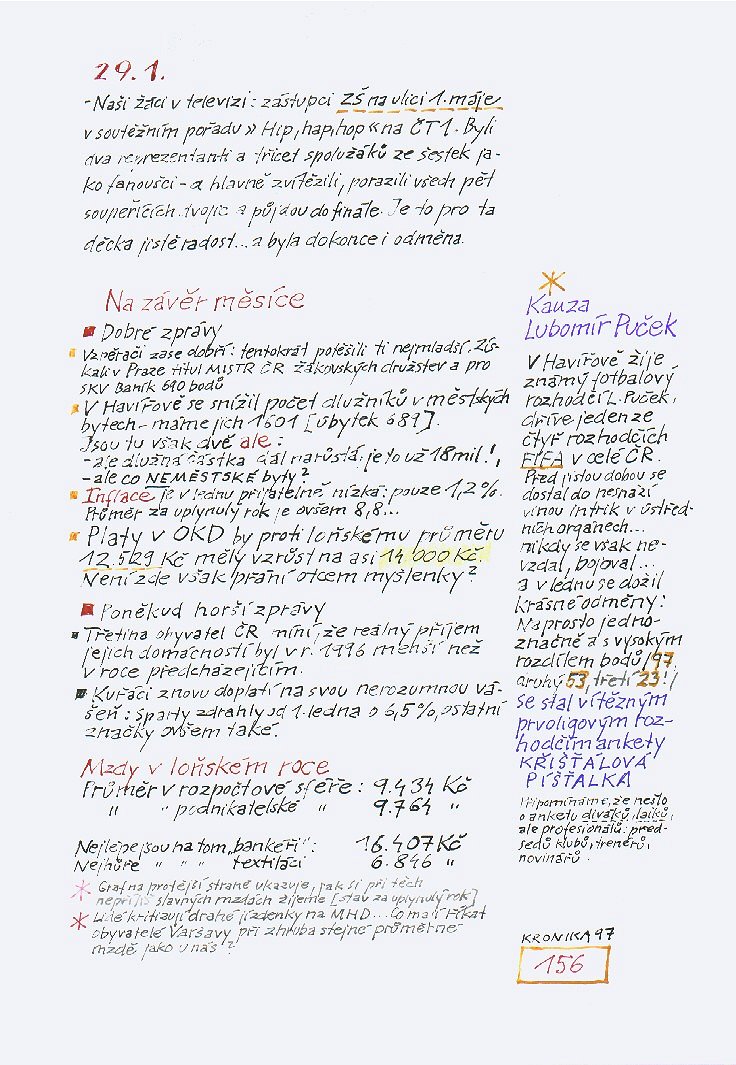 29.1.
- Naši žáci v televizi: zástupci ZŠ na ulici 1. máje
v soutěžním pořadu » Hip, hap, hop « na ČT 1. Byli
dva reprezentanti a třicet spolužáků ze šestek ja-
ko fanoušci - a hlavně zvítězili, porazili všech pět
soupeřících dvojic a půjdou do finále. Je to pro ta
děcka jistě radost... a byla dokonce i odměna.
Na závěr měsíce
Dobré zprávy
Vzpěrači zase dobří: tentokrát potěšili ti nejmladší. Zís-
kali v Praze titul MISTR ČR žákovských družstev a pro
SKV Baník 690 bodů
V Havířově se snížil počet dlužníků v městských
bytech - máme jich 1601 [úbytek 689].
Jsou tu však dvě ale:
- ale dlužná částka dál narůstá: je to už 18 mil!,
- ale co NEMĚSTSKÉ byty?
Inflace je v lednu přijatelně nízká: pouze 1,2%.
Průměr za uplynulý rok je ovšem 8,8...
Platy v OKD by proti loňskému průměru
12.529 Kč měly vzrůst na asi 14 000 Kč.
Není zde však přání otcem myšlenky?
Poněkud horší zprávy
Třetina obyvatel ČR míní, že reálný příjem
jejich domácností byl v r. 1996 menší než
v roce předcházejícím.
Kuřáci znovu doplatí na svou nerozumnou vá-
šeň: Sparty zdrahly od 1. ledna o 6,5%, ostatní
značky ovšem také.
Mzdy v loňském roce
Průměr v rozpočtové sféře: 9.434 Kč
" " podnikatelské " 9.764 "
Nejlépe jsou na tom „bankéři": 16.407 Kč
Nejhůře " " " textiláci 6.846 "
* Graf na protější straně ukazuje, jak si při těch
nepříliš slavných mzdách žijeme [stav za uplynulý rok]
* Lidé kritizují drahé jízdenky na MHD... Co mají říkat
obyvatelé Varšavy při zhruba stejné průměrné
mzdě jako u nás?
*
Kauza
Lubomír Puček
V Havířově žije
známý fotbalový
rozhodčí L. Puček,
dříve jeden ze
čtyř rozhodčích
FIFA v celé ČR.
Před jistou dobou se
dostal do nesnází
vinou intrik v ústřed-
ních orgánech...
nikdy se však ne-
vzdal, bojoval...
a v lednu se dožil
krásné odměny:
Naprosto jedno-
značně a s vysokým
rozdílem bodů /97,
druhý 53, třetí 23!/
se stal vítězným
prvoligovým roz-
hodčím ankety
KŘIŠŤÁLOVÁ
PÍŠŤALKA
Připomínáme, že nešlo
o anketu diváků, laiků,
ale profesionálů: před-
sedů klubů, trenérů,
novinářů.
KRONIKA 97
156